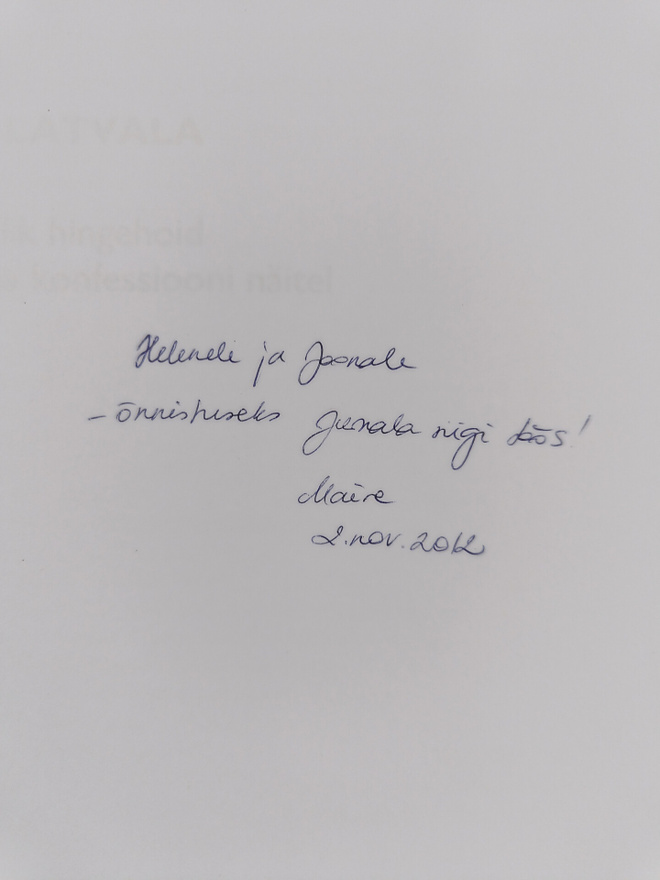 LATVALA
hingehoid
konfessiooni näitel
Helenele ja Joonale
– õnnistuseks Jumala riigi töös!
Maire
2.nov.2012